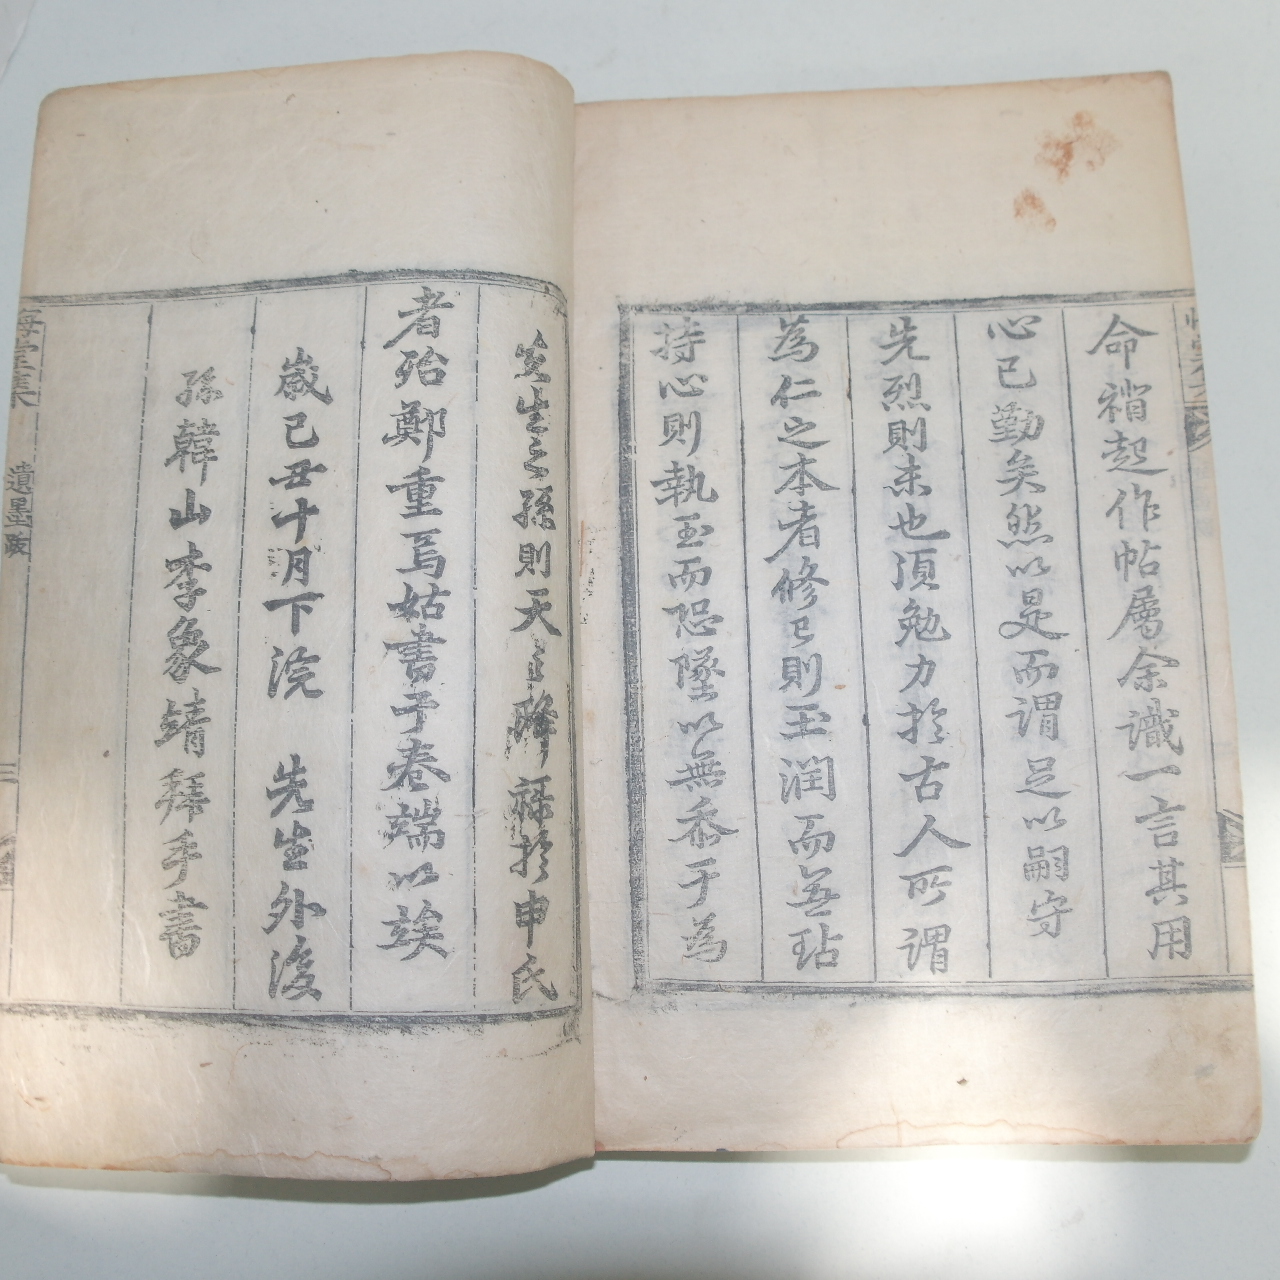 命褙起作帖屬余識一言其用
心已勤矣然以是而謂足以嗣守
先烈則未也須勉力於古人所謂
為仁之本者修己則玉潤而無玷
持心則執玉而恐墜以無忝于為
先生之孫則天之降祿於申氏
者殆鄭重焉姑書于卷端以竢
歲己丑十月下浣 先生外後
孫韓山李象靖拜手書
悔堂集 遺墨跋 三